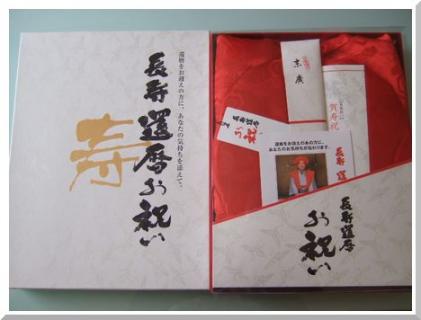 還暦をお迎えの方に、あなたの気持ちを添えて。
長寿還暦お祝い
寿
末廣
賀寿祝
長寿還暦
お祝
還暦をお迎えの方に、
あなたのお気持ちが伝わります。
長寿還暦
お祝い